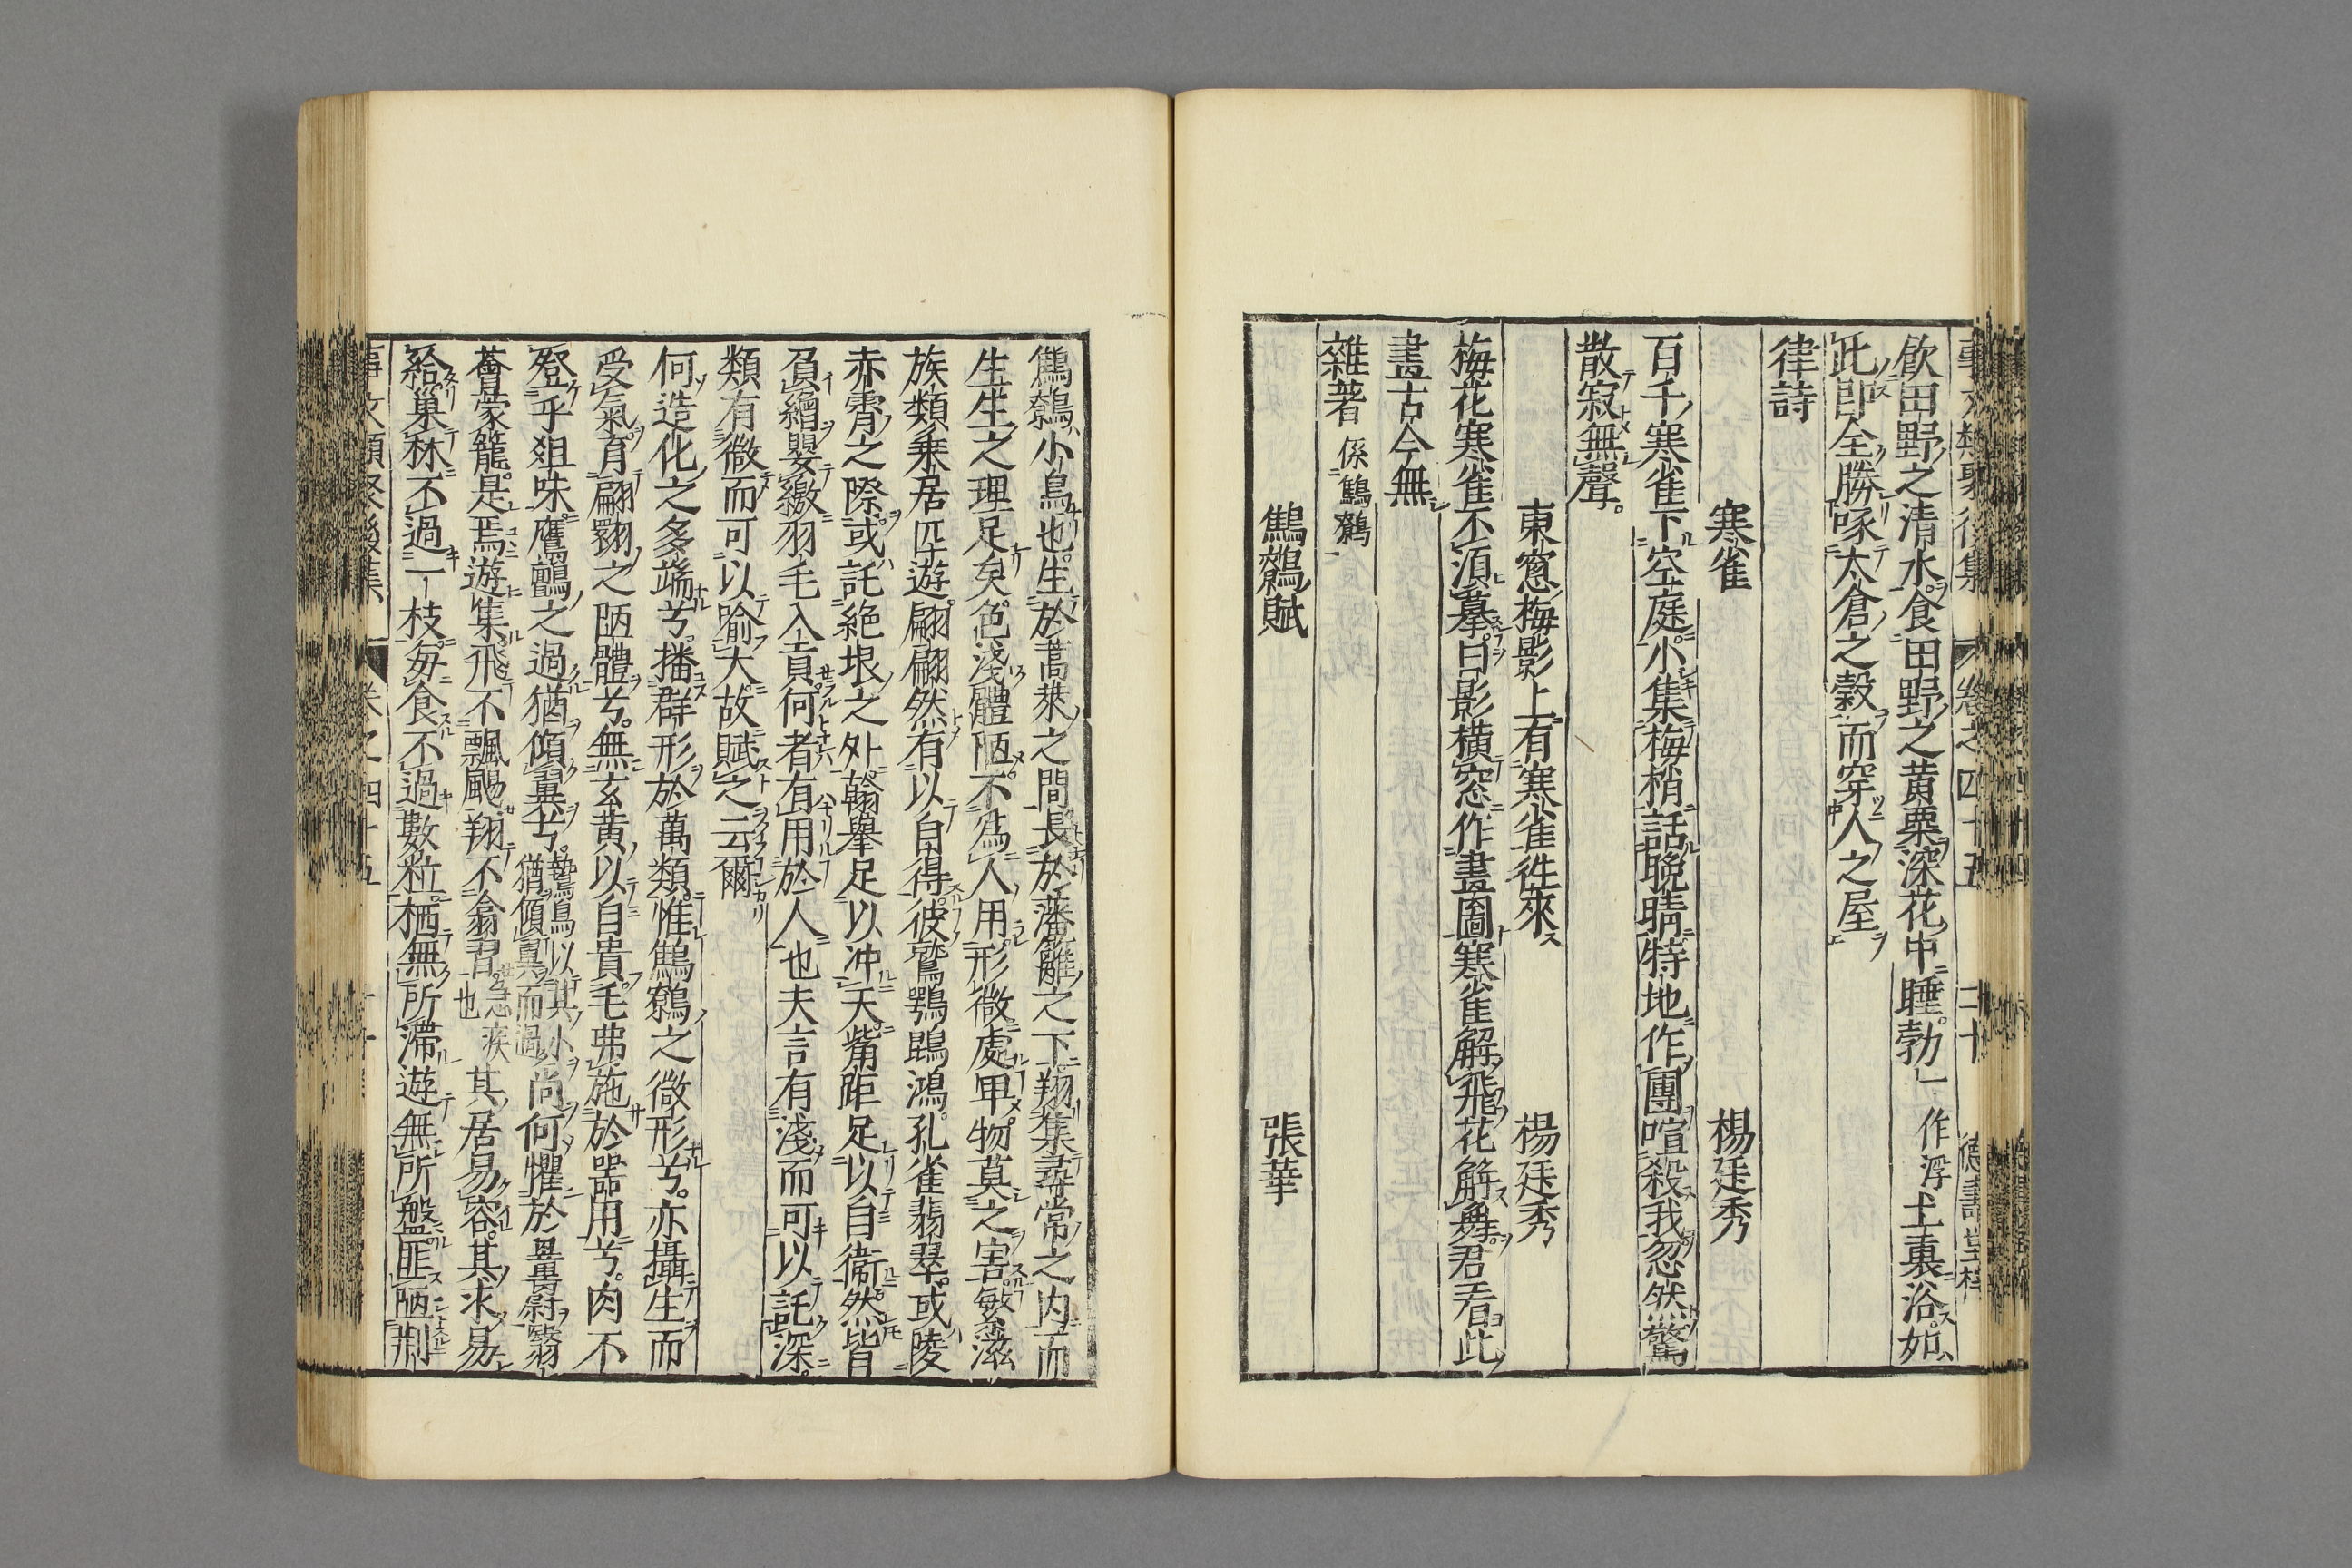 飲田野之清水食田野之黄粟深花中睡勃一作浮土裏浴如
此即全勝啄太倉之穀而穿人之屋
律詩
寒雀 楊廷秀
百千寒雀下空庭小集梅梢話晩晴特地作團喧殺我忽然驚
散寂無聲
東窓梅影上有寒雀徃來 楊廷秀
梅花寒雀不湏摹日影橫窓作畫圖寒雀解飛花解舞君看此
畫古今無
雜著 係鷦鷯
鷦鷯賦 張華
鷦鷯小鳥也生於蒿萊之間長於藩籬之下翔集尋常之内而
生生之理足矣色淺體陋不爲人用形微處卑物莫之害繁滋
族類乗居匹遊翩翩然有以自得彼鷲鶚鵾鴻孔雀翡翠或陵
赤霄之際或託絶垠之外翰舉足以冲天觜距足以自衛然皆
負繒嬰繳羽毛入貢何者有用於人也夫言有淺而可以託深
類有微而可以喩大故賦之云爾
何造化之多端兮播群形於萬類惟鷦鷯之微形兮亦攝生而
受氣育翩翾之陋體兮無玄黄以自貴毛弗施於器用兮肉不
登乎爼味鷹鸇之過猶傾翼兮鷙鳥以其小猶傾翼而過尚何懼於罿罻翳
薈蒙籠是焉遊集飛不飄颺翔不翕習急疾也其居易容其求易
給巢林不過一枝毎食不過數粒栖無所滯遊無所盤匪陋荆
事文類聚後集 卷之四十五